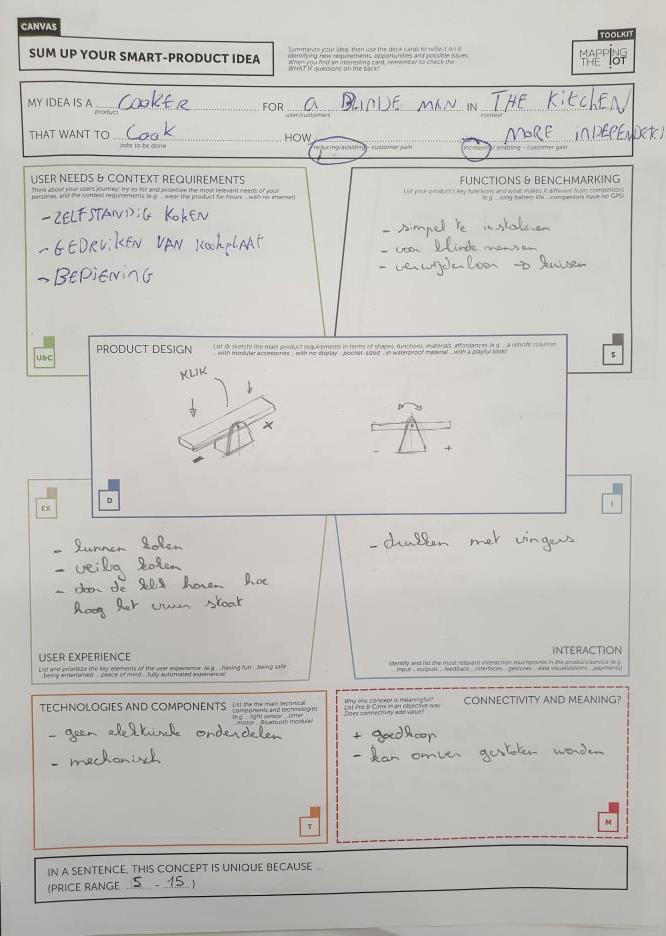 CANVAS
SUM UP YOUR SMART-PRODUCT IDEA
Summarize your idea, then use the deck cards to reflect on it,
identifying new requirements, opportunities and possible issues.
When you find an interesting card, remember to check the
WHAT IF questions on the back!
TOOLKIT
MAPPING
THE IOT
MY IDEA IS A COOKER FOR a BLINDE MAN IN THE KITCHEN
product
user/customers
context
THAT WANT TO Cook HOW MORE INDEPENDET
jobs to be done
reducing/avoiding - customer pain
increasing/ enabling - customer gain
USER NEEDS & CONTEXT REQUIREMENTS
Think about your users journey: try to list and prioritize the most relevant needs of your
personas, and the context requirements (e.g. ...wear the product for hours ...with no internet)
- ZELFSTANDIG KOKEN
- GEDRUIKEN VAN KOOKPLAAT
- BEDIENING
U&C
FUNCTIONS & BENCHMARKING
List your product's key functions and what makes it different from competitors
(e.g. ...long battery life ...competitors have no GPS)
- simpel te instaleren
- voor blinde mensen
- verwijderbaar → kuisen
S
PRODUCT DESIGN
List (& sketch) the main product requirements in terms of shapes, functions, materials, affordances (e.g. ...a retrofit solution
...with modular accessories ...with no display ...pocket-sized ...in waterproof material ...with a playful look)
KLIK
- +
- +
D
EX
- kunnen koken
- veilig koken
- door de klik horen hoe
hoog het vuur staat
USER EXPERIENCE
List and prioritize the key elements of the user experience (e.g. ...having fun ...being safe
...being entertained ...peace of mind ...fully automated experience)
I
- drukken met vingers
INTERACTION
Identify and list the most relevant interaction touchpoints in the product/service (e.g.
...input ...outputs ...feedback ...interfaces ...gestures ...data visualizations ...payments)
TECHNOLOGIES AND COMPONENTS
List the the main technical
components and technologies
(e.g. ...light sensor ...timer
...motor ...Bluetooth module)
- geen elektrische onderdelen
- mechanisch
T
Why this concept is meaningful?
List Pro & Cons in an objective way
Does connectivity add value?
CONNECTIVITY AND MEANING?
+ goedkoop
- kan omver gestoten worden
M
IN A SENTENCE, THIS CONCEPT IS UNIQUE BECAUSE ...
(PRICE RANGE 5 - 15 )